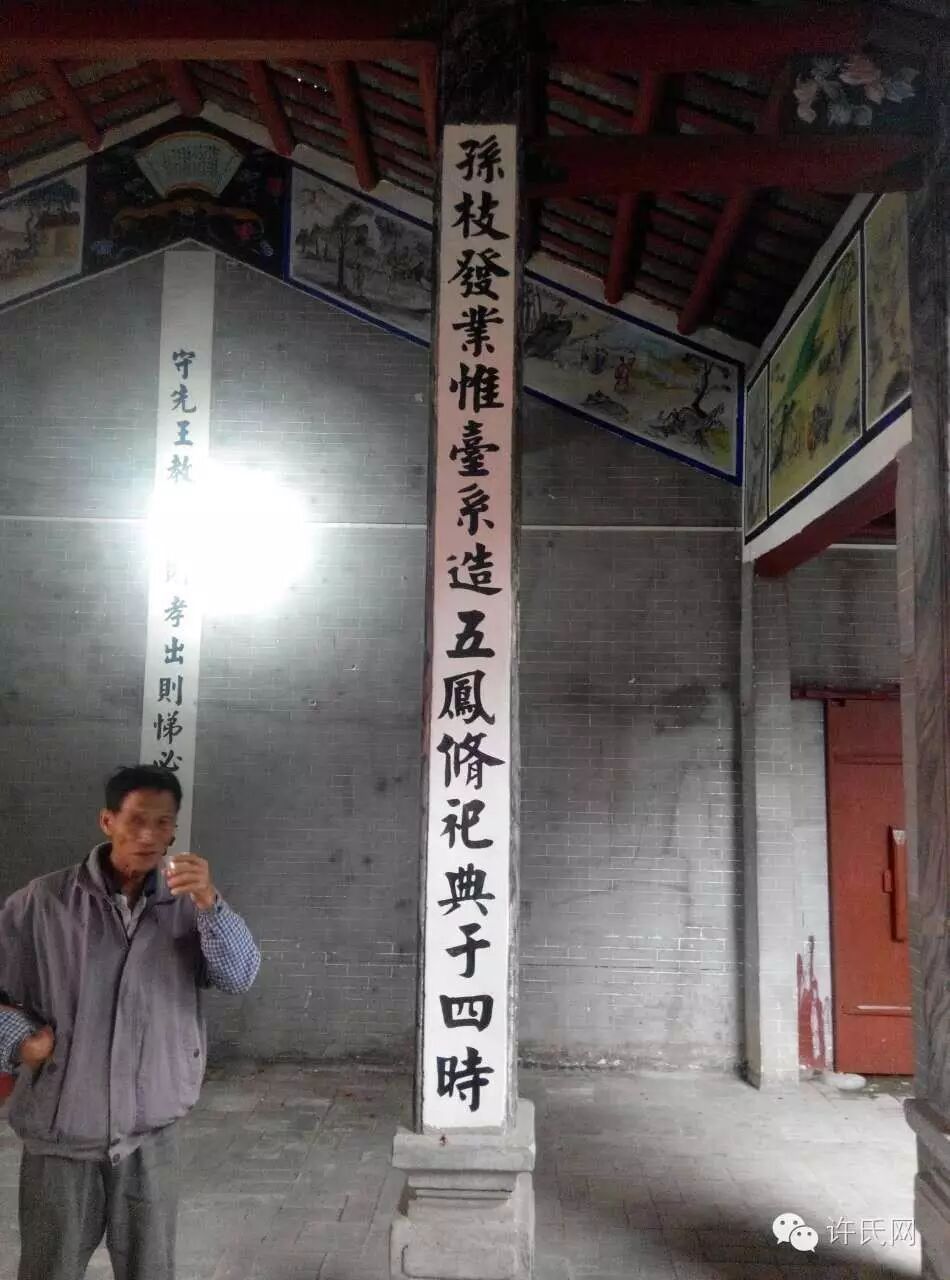 孫枝發業惟臺系造五鳳脩祀典于四時
守先王教
孝出則悌必
许氏网